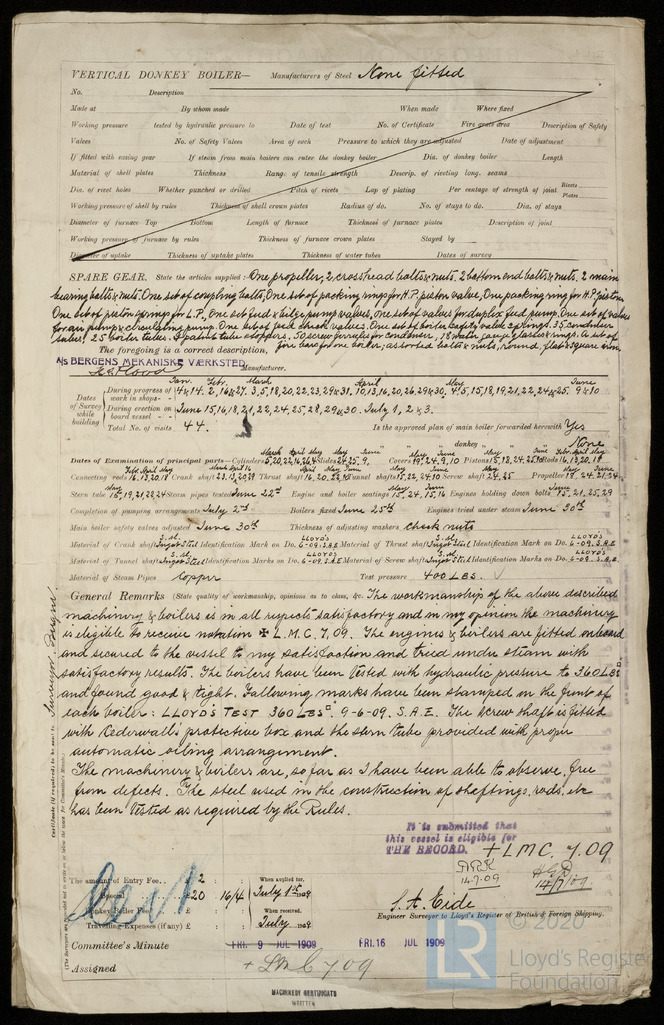 VERTICAL DONKEY BOILER— Manufacturers of Steel None fitted
No. Description
Made at By whom made When made Where fixed
Working pressure tested by hydraulic pressure to Date of test No. of Certificate Fire grate area Description of Safety
Valves No. of Safety Valves Area of each Pressure to which they are adjusted Date of adjustment
If fitted with easing gear If steam from main boilers can enter the donkey boiler Dia. of donkey boiler Length
Material of shell plates Thickness Range of tensile strength Descrip. of riveting long. seams
Dia. of rivet holes Whether punched or drilled Pitch of rivets Lap of plating Per centage of strength of joint Rivets Plates
Working pressure of shell by rules Thickness of shell crown plates Radius of do. No. of stays to do. Dia. of stays
Diameter of furnace Top Bottom Length of furnace Thickness of furnace plates Description of joint
Working pressure of furnace by rules Thickness of furnace crown plates Stayed by
Diameter of uptake Thickness of uptake plates Thickness of water tubes Dates of survey
SPARE GEAR. State the articles supplied:— One propeller, 2 crosshead bolts & nuts. 2 bottom end bolts & nuts. 2 main
bearing bolts & nuts. One set of coupling bolts, One set of packing rings for H.P. piston valve, One packing ring for H.P. piston
One set of piston springs for L.P., One set feed & bilge pump valves, one set of valves for duplex feed pump. One set of valves
for air pump & circulating pump. One set of feed check valves. One set of boiler safety valve springs. 35 condenser
tubes. 25 boiler tubes. tube stoppers. 50 screw ferrules for condenser, 18 water gauge glasses & rings. A set of
The foregoing is a correct description, fire bars for one boiler, assorted bolts & nuts, round, flat & square iron.
A/S BERGENS MEKANISKE VÆRKSTED.
Manufacturer.
Dates of Survey while building
During progress of work in shops - - Jan. 4 & 14. Febr. 2, 16 & 27. March 3, 5, 18, 20, 22, 23, 29 & 31. April 10, 13, 16, 20, 26, 29 & 30. May 4, 5, 15, 18, 19, 21, 22, 24 & 25. June 9 & 10
During erection on board vessel - - - June 15, 16, 18, 21, 22, 24, 25, 28, 29 & 30. July 1, 2 & 3.
Total No. of visits 44. Is the approved plan of main boiler forwarded herewith Yes
" " " donkey " " " None
Dates of Examination of principal parts—Cylinders Slides Covers Pistons Rods
Connecting rods Crank shaft Thrust shaft Tunnel shafts Screw shaft 24, 25 Propeller
Stern tube Steam pipes tested June 22nd Engine and boiler seatings Engines holding down bolts
Completion of pumping arrangements July 2nd Boilers fixed June 25th Engines tried under steam June 30th
Main boiler safety valves adjusted June 30th Thickness of adjusting washers check nuts
Material of Crank shaft S.M. Ingot Steel Identification Mark on Do. LLOYD'S 6-09. S.A.E Material of Thrust shaft S.M. Ingot Steel Identification Mark on Do. LLOYD'S 6-09. S.A.E
Material of Tunnel shafts S.M. Ingot Steel Identification Marks on Do. LLOYD'S 6-09. S.A.E Material of Screw shafts S.M. Ingot Steel Identification Marks on Do. LLOYD'S 6-09. S.A.E
Material of Steam Pipes Copper Test pressure 400 LBS.
General Remarks (State quality of workmanship, opinions as to class, &c. The workmanship of the above described
machinery & boilers is in all respects satisfactory and in my opinion the machinery
is eligible to receive notation ✠ L.M.C. 7, 09. The engines & boilers are fitted onboard
and secured to the vessel to my satisfaction and tried under steam with
satisfactory results. The boilers have been tested with hydraulic pressure to 360 LBS
and found good & tight. Following marks have been stamped on the front of
each boiler: LLOYD'S TEST 360 LBS. 9-6-09. S.A.E. The screw shaft is fitted
with Cederwall's protective box and the stern tube provided with proper
automatic oiling arrangement.
The machinery & boilers are, so far as I have been able to observe, free
from defects. The steel used in the construction of shaftings, rods, etc
has been tested as required by the Rules.
It is submitted that
this vessel is eligible for
THE RECORD. + LMC. 7.09
14.7.09
14/7/09
The amount of Entry Fee.. £ 2 : : When applied for,
Special £20 : 16/4 : July 1st 1909
Donkey Boiler Fee £ : : When received,
Travelling Expenses (if any) £ : : July 1909
S. A. Eide
Engineer Surveyor to Lloyd's Register of British & Foreign Shipping.
Committee's Minute FRI. 9 JUL 1909 FRI. 16 JUL 1909
Assigned + LMC 7 09
MACHINERY CERTIFICATE
WRITTEN
Certificate (if required) to be sent to Surveyor, Bergen.
© 2020
LR
Lloyd's Register
Foundation